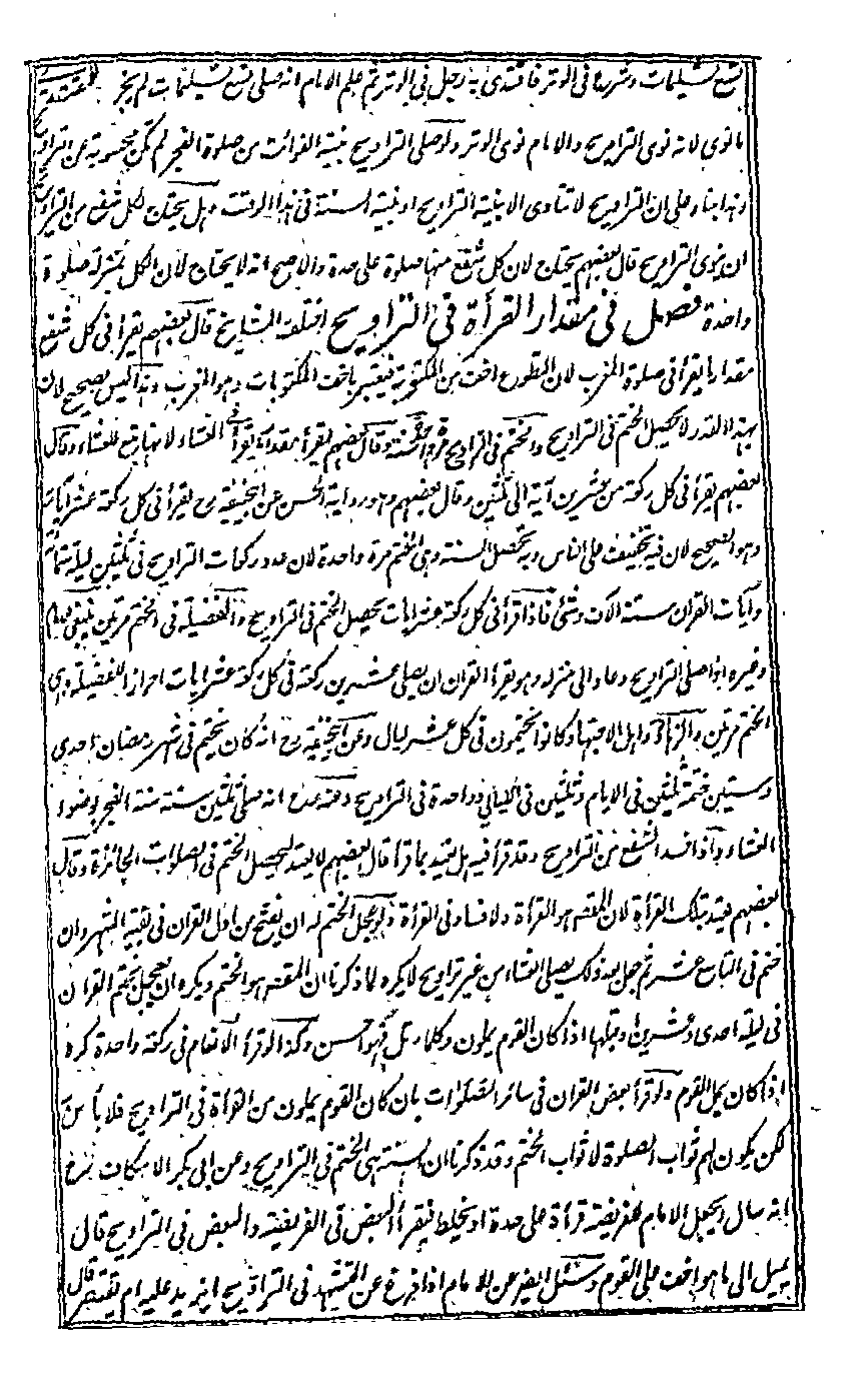 تسع تسليمات وشرع فى الوتر فاقتدى به رجل فى الوتر ثم علم الامام انه صلى تسع تسليمات لم يجز
ما نوى لانه نوى التراويح والامام نوى الوتر ولو صلى التراويح بنية الفوائت من صلوة الفجر لم تكن محسوبة عن التراويح
وهذا بناء على ان التراويح لا تتادى الا بنية التراويح او بنية السنة فى هذا الوقت وهل يحتاج لكل شفع من التراويح
ان ينوى التراويح قال بعضهم يحتاج لان كل شفع منها صلوة على حدة والاصح انه لا يحتاج لان الكل بمنزلة صلوة
واحدة فصل فى مقدار القرأة فى التراويح اختلف المشايخ قال بعضهم يقرأ فى كل شفع
مقدار ما يقرأ فى صلوة المغرب لان التطوع اخف من المكتوبة فيعتبر باخف المكتوبات وهو المغرب وهذا ليس بصحيح لان
بهذا القدر لا يحصل الختم فى التراويح والختم فى التراويح مرة سنة وقال بعضهم يقرأ مقدار ما يقرأ فى العشاء لانها تبع للعشاء وقال
بعضهم يقرأ فى كل ركعة من عشرين آية الى ثلثين وقال بعضهم وهو رواية الحسن عن ابيحنيفة رح يقرأ فى كل ركعة عشر آيات
وهو الصحيح لان فيه تخفيف على الناس وبه تحصل السنة وهى الختم مرة واحدة لان عدد ركعات التراويح فى ثلثين ليلة ستمائة
وآيات القران ستة الاف وشئ فاذا قرأ فى كل ركعة عشر ايات يحصل الختم فى التراويح والفضيلة فى الختم مرتين ينبغى
وغيره اذا صلى التراويح وعاد الى منزله وهو يقرأ القران ان يصلى عشرين ركعة فى كل ركعة عشر ايات احرازا للفضيلة وهى
الختم مرتين والزهاد واهل الاجتهاد كانوا يختمون فى كل عشر ليال وعن ابيحنيفة رح انه كان يختم فى شهر رمضان احدى
وستين ختمة ثلثين فى الايام وثلثين فى الليالي وواحدة فى التراويح وعنه رح انه صلى ثلثين سنة الفجر بوضوء
العشاء واذا فسد الشفع من التراويح وقد قرأ فيه هل يعتد بما قرأ قال بعضهم لا يعتد ليحصل الختم فى الصلوات الجائزة وقال
بعضهم يعتد بتلك القرأة لان المقصود هو القرأة ولا فساد فى القرأة ولو عجل الختم له ان يفتتح من اول القران فى بقية الشهر وان
ختم فى التاسع عشر ثم جعل بعد ذلك يصلى العشاء من غير تراويح لا يكره لما ذكرنا ان المقصود هو الختم ويكره ان يعجل بختم القران
فى ليلة احدى وعشرين وقبلها اذا كان القوم يملون وكلما رتل فهو احسن وكذا لو قرأ الانعام فى ركعة واحدة كره
اذا كان يمل القوم ولو قرأ بعض القران فى سائر الصلوات بان كان القوم يملون من القرأة فى التراويح فلا بأس به
لكن يكون لهم ثواب الصلوة لا ثواب الختم وقد ذكرنا ان السنة هى الختم فى التراويح وعن ابى بكر الاسكاف رح
انه سال ايجعل الامام للفريضة قرأة على حدة او يخلط فيقرأ البعض فى الفريضة والبعض فى التراويح قال
يميل الى ما هو اخف على القوم وسئل ايضا عن الامام اذا فرغ عن التشهد فى التراويح ايزيد عليه ام يقتصر قال